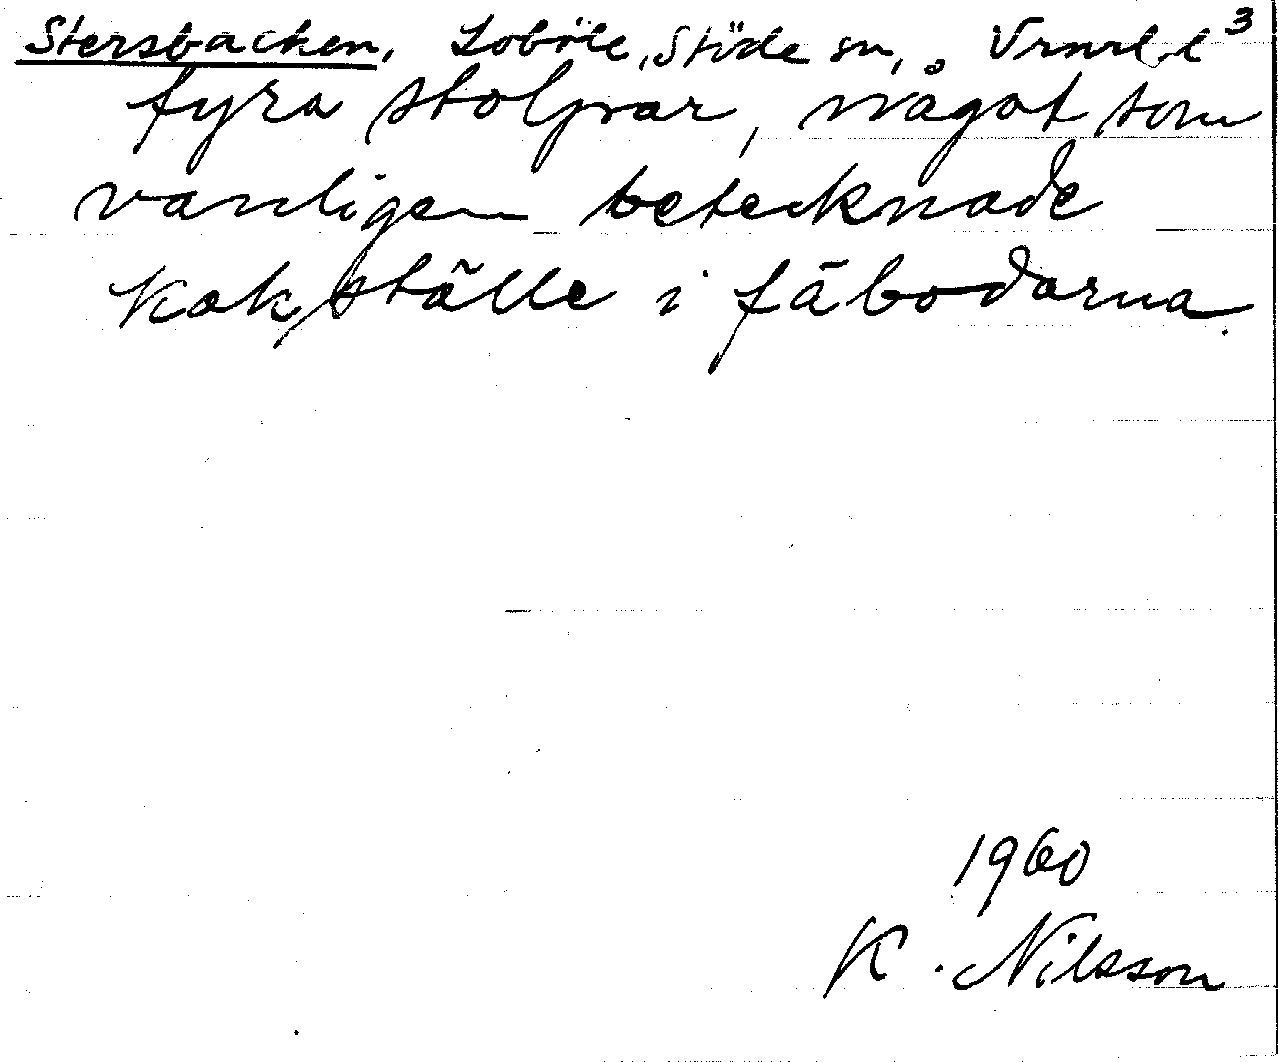 Stersbacken, Loböle, Stöde sn, 3
fyra stolpar, något som
vanligen betecknade
kokställe i fäbodarna.
1960
K. Nilsson